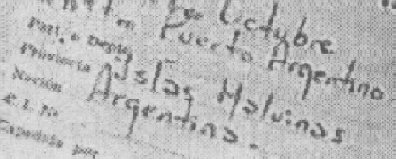 Octubre
Part. o Depto Puerto Argentino
Provincia Islas Malvinas
Nación Argentina.
Expedida por